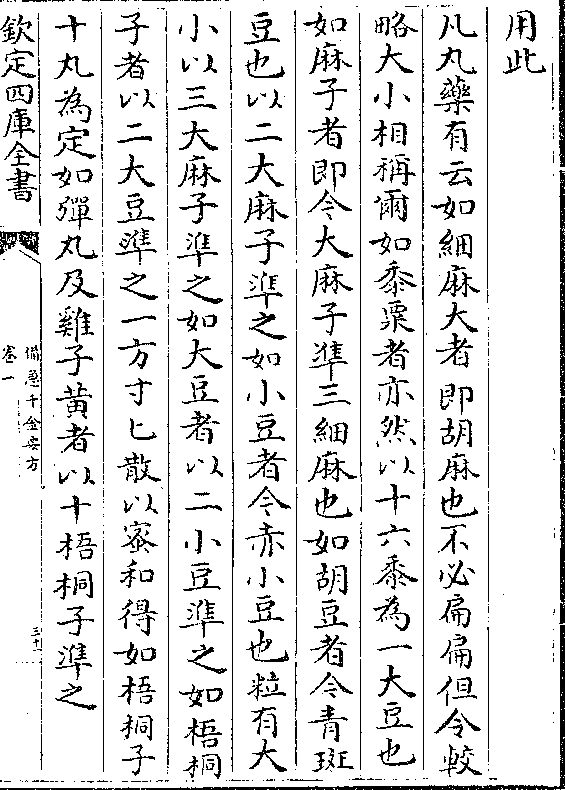 用此
凡丸藥有云如細麻大者即胡麻也不必扁扁但令較
略大小相稱爾如黍粟者亦然以十六黍為一大豆也
如麻子者即令大麻子準三細麻也如胡豆者令青斑
豆也以二大麻子準之如小豆者令赤小豆也粒有大
小以三大麻子準之如大豆者以二小豆準之如梧桐
子者以二大豆準之一方寸匕散以宻和得如梧桐子
十丸為定如彈丸及雞子黃者以十梧桐子準之
欽定四庫全書
備急千金要方
卷一